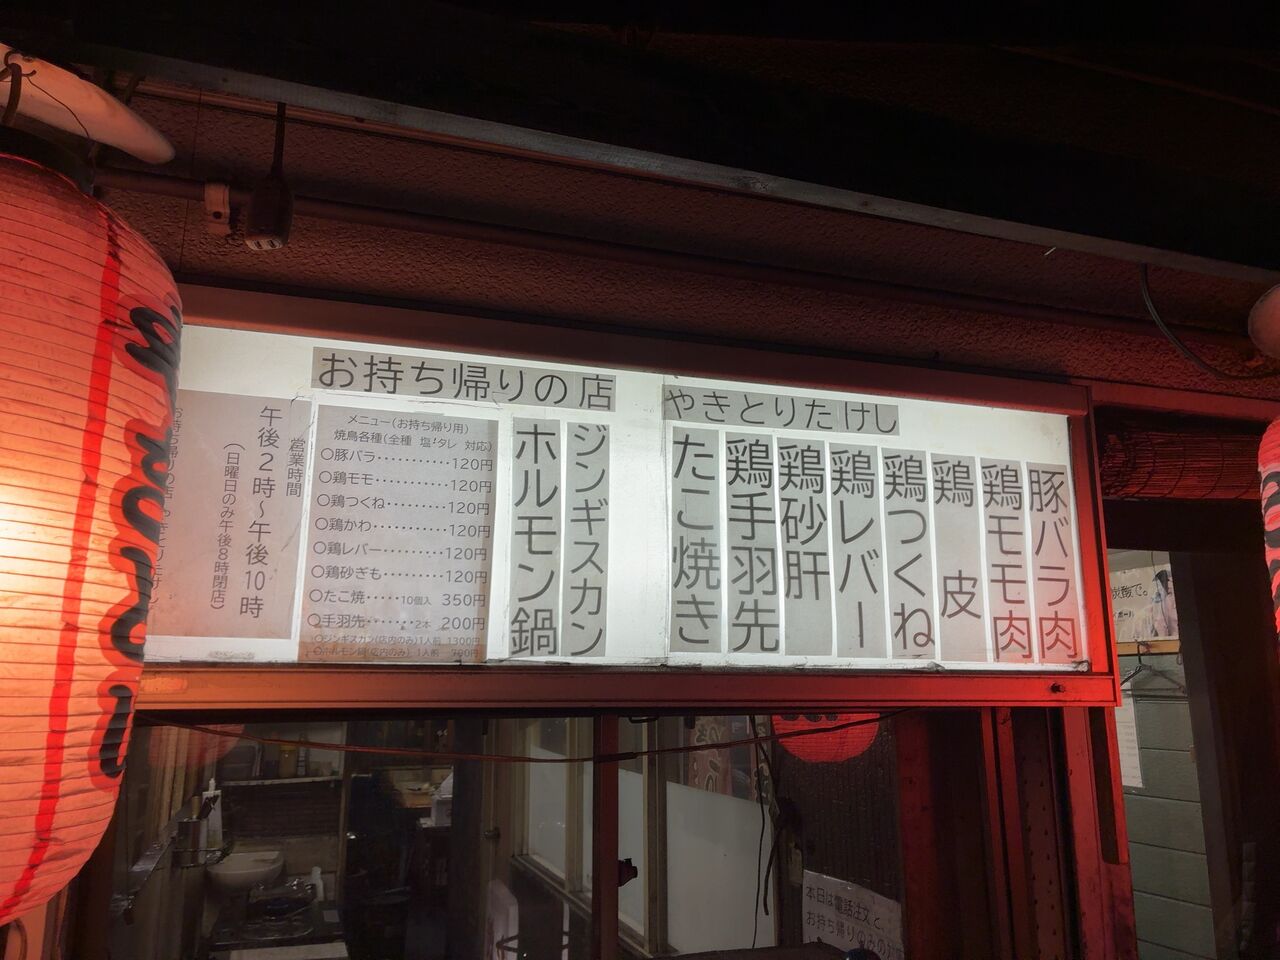 お持ち帰りの店
やきとりたけし
豚バラ肉
鶏モモ肉
鶏皮
鶏つくね
鶏レバー
鶏砂肝
鶏手羽先
たこ焼き
ジンギスカン
ホルモン鍋
メニュー(お持ち帰り用)
焼鳥各種(全種 塩・タレ 対応)
○豚バラ・・・・・・・・・・・120円
○鶏モモ・・・・・・・・・・・120円
○鶏つくね・・・・・・・・・120円
○鶏かわ・・・・・・・・・・・120円
○鶏レバー・・・・・・・・・120円
○鶏砂ぎも・・・・・・・・・120円
○たこ焼・・・・・10個入 350円
○手羽先・・・・・・2本 200円
○ジンギスカン(店内のみ)1人前 1300円
○ホルモン鍋(店内のみ)1人前 700円
営業時間
午後2時~午後10時
(日曜日のみ午後8時閉店)
お持ち帰りの店やきとりたけし
本日は電話注文と
お持ち帰りのみの
炭酸で。